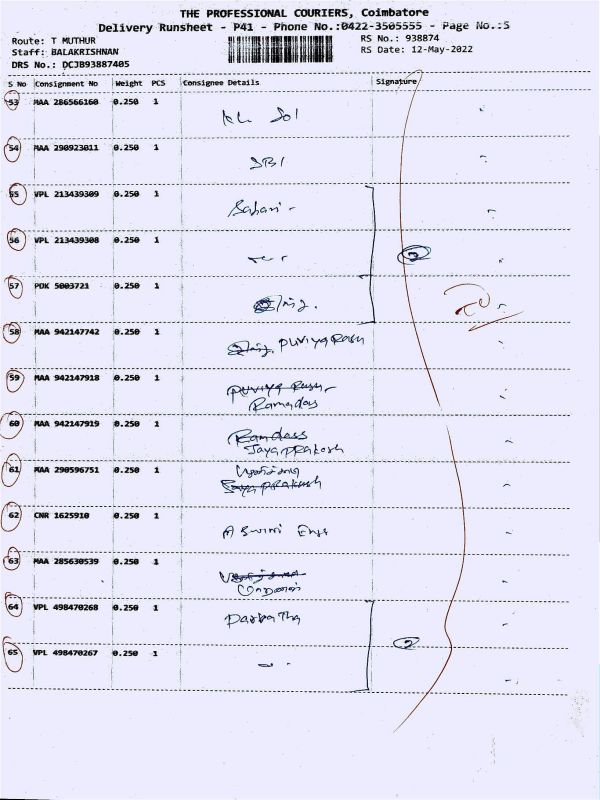 THE PROFESSIONAL COURIERS, Coimbatore
Delivery Runsheet - P41 - Phone No.:0422-3505555 - Page No.:5
Route: T MUTHUR
RS No.: 938874
Staff: BALAKRISHNAN
RS Date: 12-May-2022
DRS No.: DCJB93887405
S No Consignment No Weight PCS Consignee Details Signature
53 MAA 286566160 0.250 1
54 MAA 290923011 0.250 1 SBI
55 VPL 213439309 0.250 1
56 VPL 213439308 0.250 1 2
57 PDK 5003721 0.250 1
58 MAA 942147742 0.250 1 Puviyarasu
59 MAA 942147918 0.250 1 Puviya Rasu
Ramadass
60 MAA 942147919 0.250 1 Ramdass
Jayaprakash
61 MAA 290596751 0.250 1
Jayaprakash
62 CNR 1625910 0.250 1 Aswini Engs
63 MAA 285630539 0.250 1
64 VPL 498470268 0.250 1 Parbatha
65 VPL 498470267 0.250 1 2